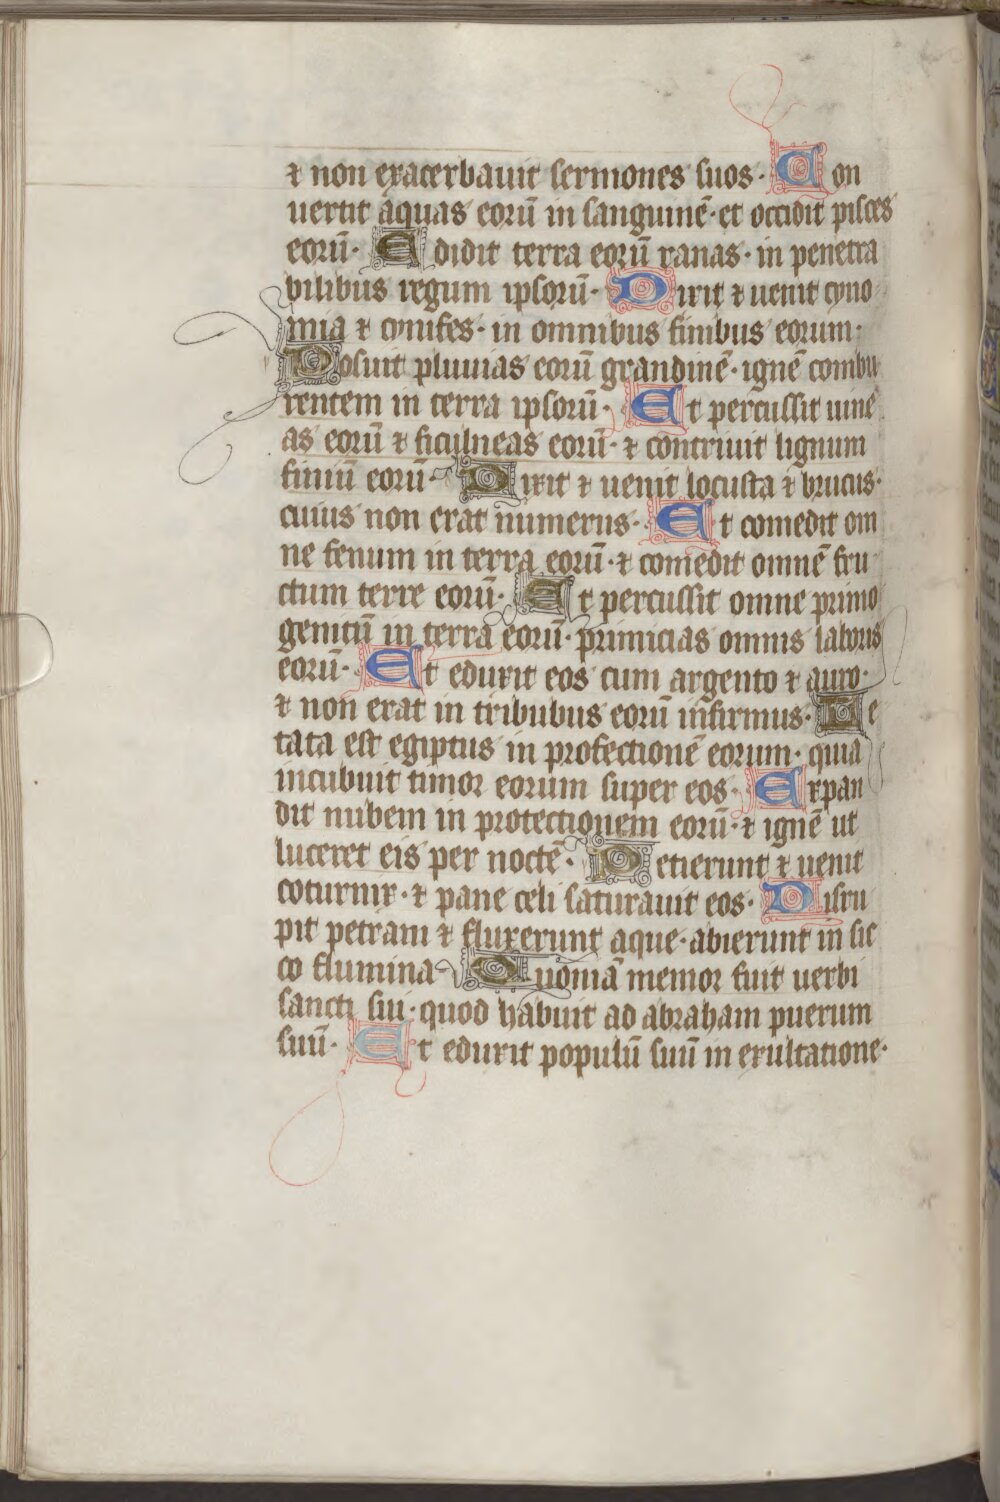 ⁊ non exacerbauit sermones suos· Con
uertit aquas eorū in sanguinē· et occidit pisces
eorū· Edidit terra eorū ranas· in penetra
bilibus regum ipsorū· Dixit ⁊ uenit cyno
mia ⁊ cynifes· in omnibus finibus eorum·
Posuit pluuias eorū grandinē· ignē combu
rentem in terra ipsorū· Et percussit uine
as eorū ⁊ ficulneas eorū· ⁊ contriuit lignum
finiū eorū· Dixit ⁊ uenit locusta ⁊ brucus·
cuius non erat numerus· Et comedit om
ne fenum in terra eorū· ⁊ comedit omnē fru
ctum terre eorū· Et percussit omne primo
genitū in terra eorū· primicias omnis laboris
eorū· Et eduxit eos cum argento ⁊ auro·
⁊ non erat in tribubus eorū infirmus· Le
tata est egiptus in profectionē eorum· quia
incubuit timor eorum super eos· Expan
dit nubem in protectionem eorū· ⁊ ignē ut
luceret eis per noctē· Petierunt ⁊ uenit
coturnix· ⁊ pane celi saturauit eos· Disru
pit petram ⁊ fluxerunt aque· abierunt in sic
co flumina· Quoniā memor fuit uerbi
sancti sui· quod habuit ad abraham puerum
suū· Et eduxit populū suū in exultatione·